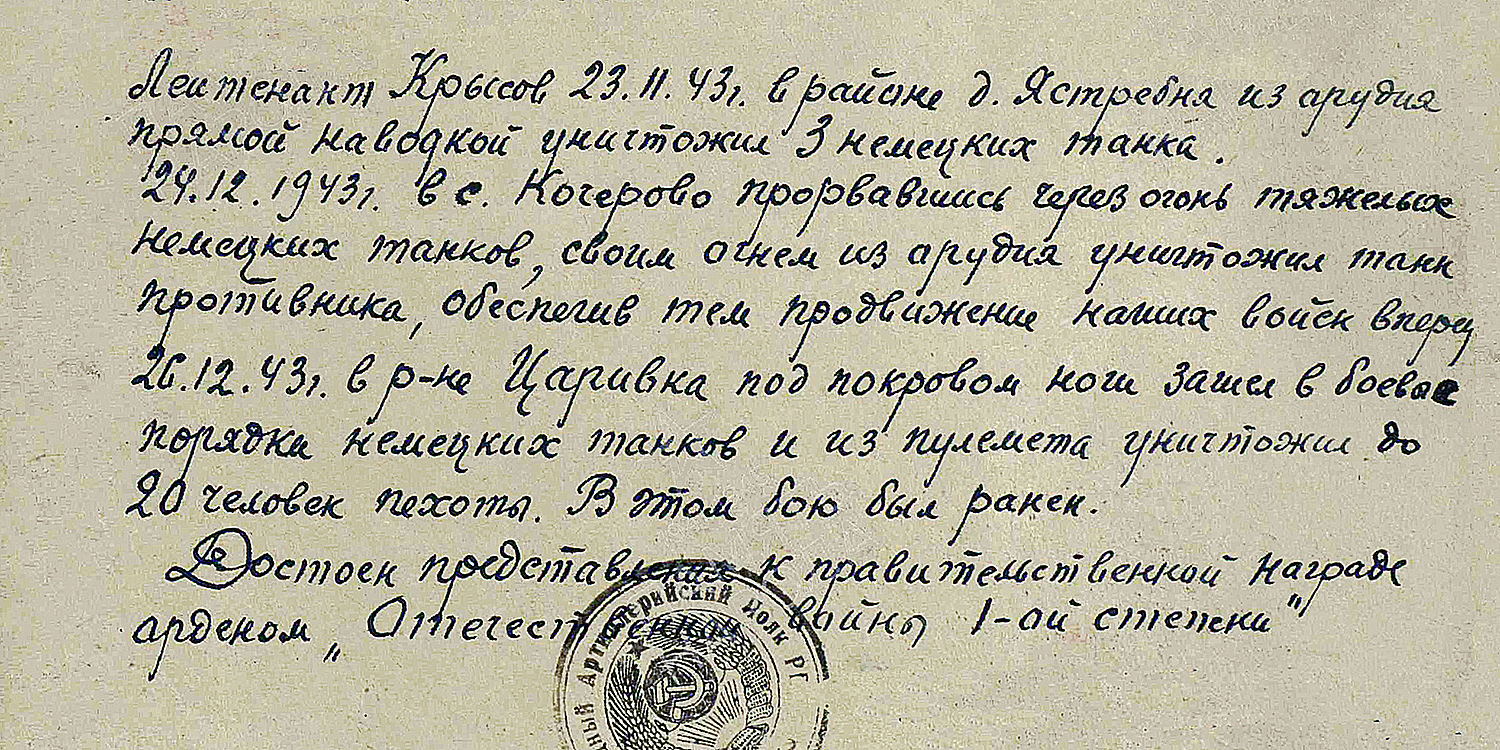 Лейтенант Крысов 23.11.43г. в районе д. Ястребня из арудия
прямой наводкой уничтожил 3 немецких танка.
24.12.1943г. в с. Кочерово прорвавшись через огонь тяжелых
немецких танков, своим огнем из арудия уничтожил танк
противника, обеспечив тем продвижение наших войск вперед
26.12.43г. в р-не Царивка под покровом ночи зашел в боевые
порядки немецких танков и из пулемета уничтожил до
20 человек пехоты. В этом бою был ранен.
Достоен представления к правительственной награде
арденом „Отечественная войны 1-ай степени"
Артиллерийский полк РГ